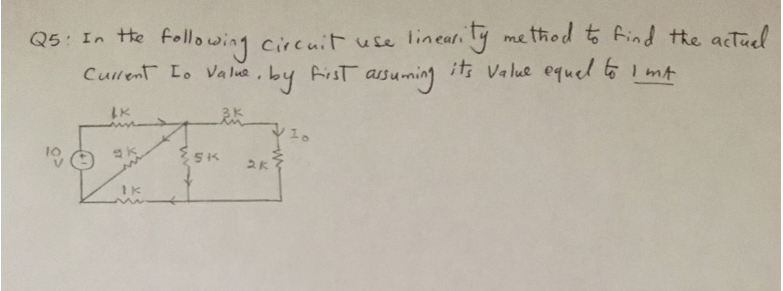 Q5: In the following circuit use linearity method to find the actual
Current Io Value, by first assuming its Value equal to 1 mA
1K
3K
Io
10
V
5K
2K
1K